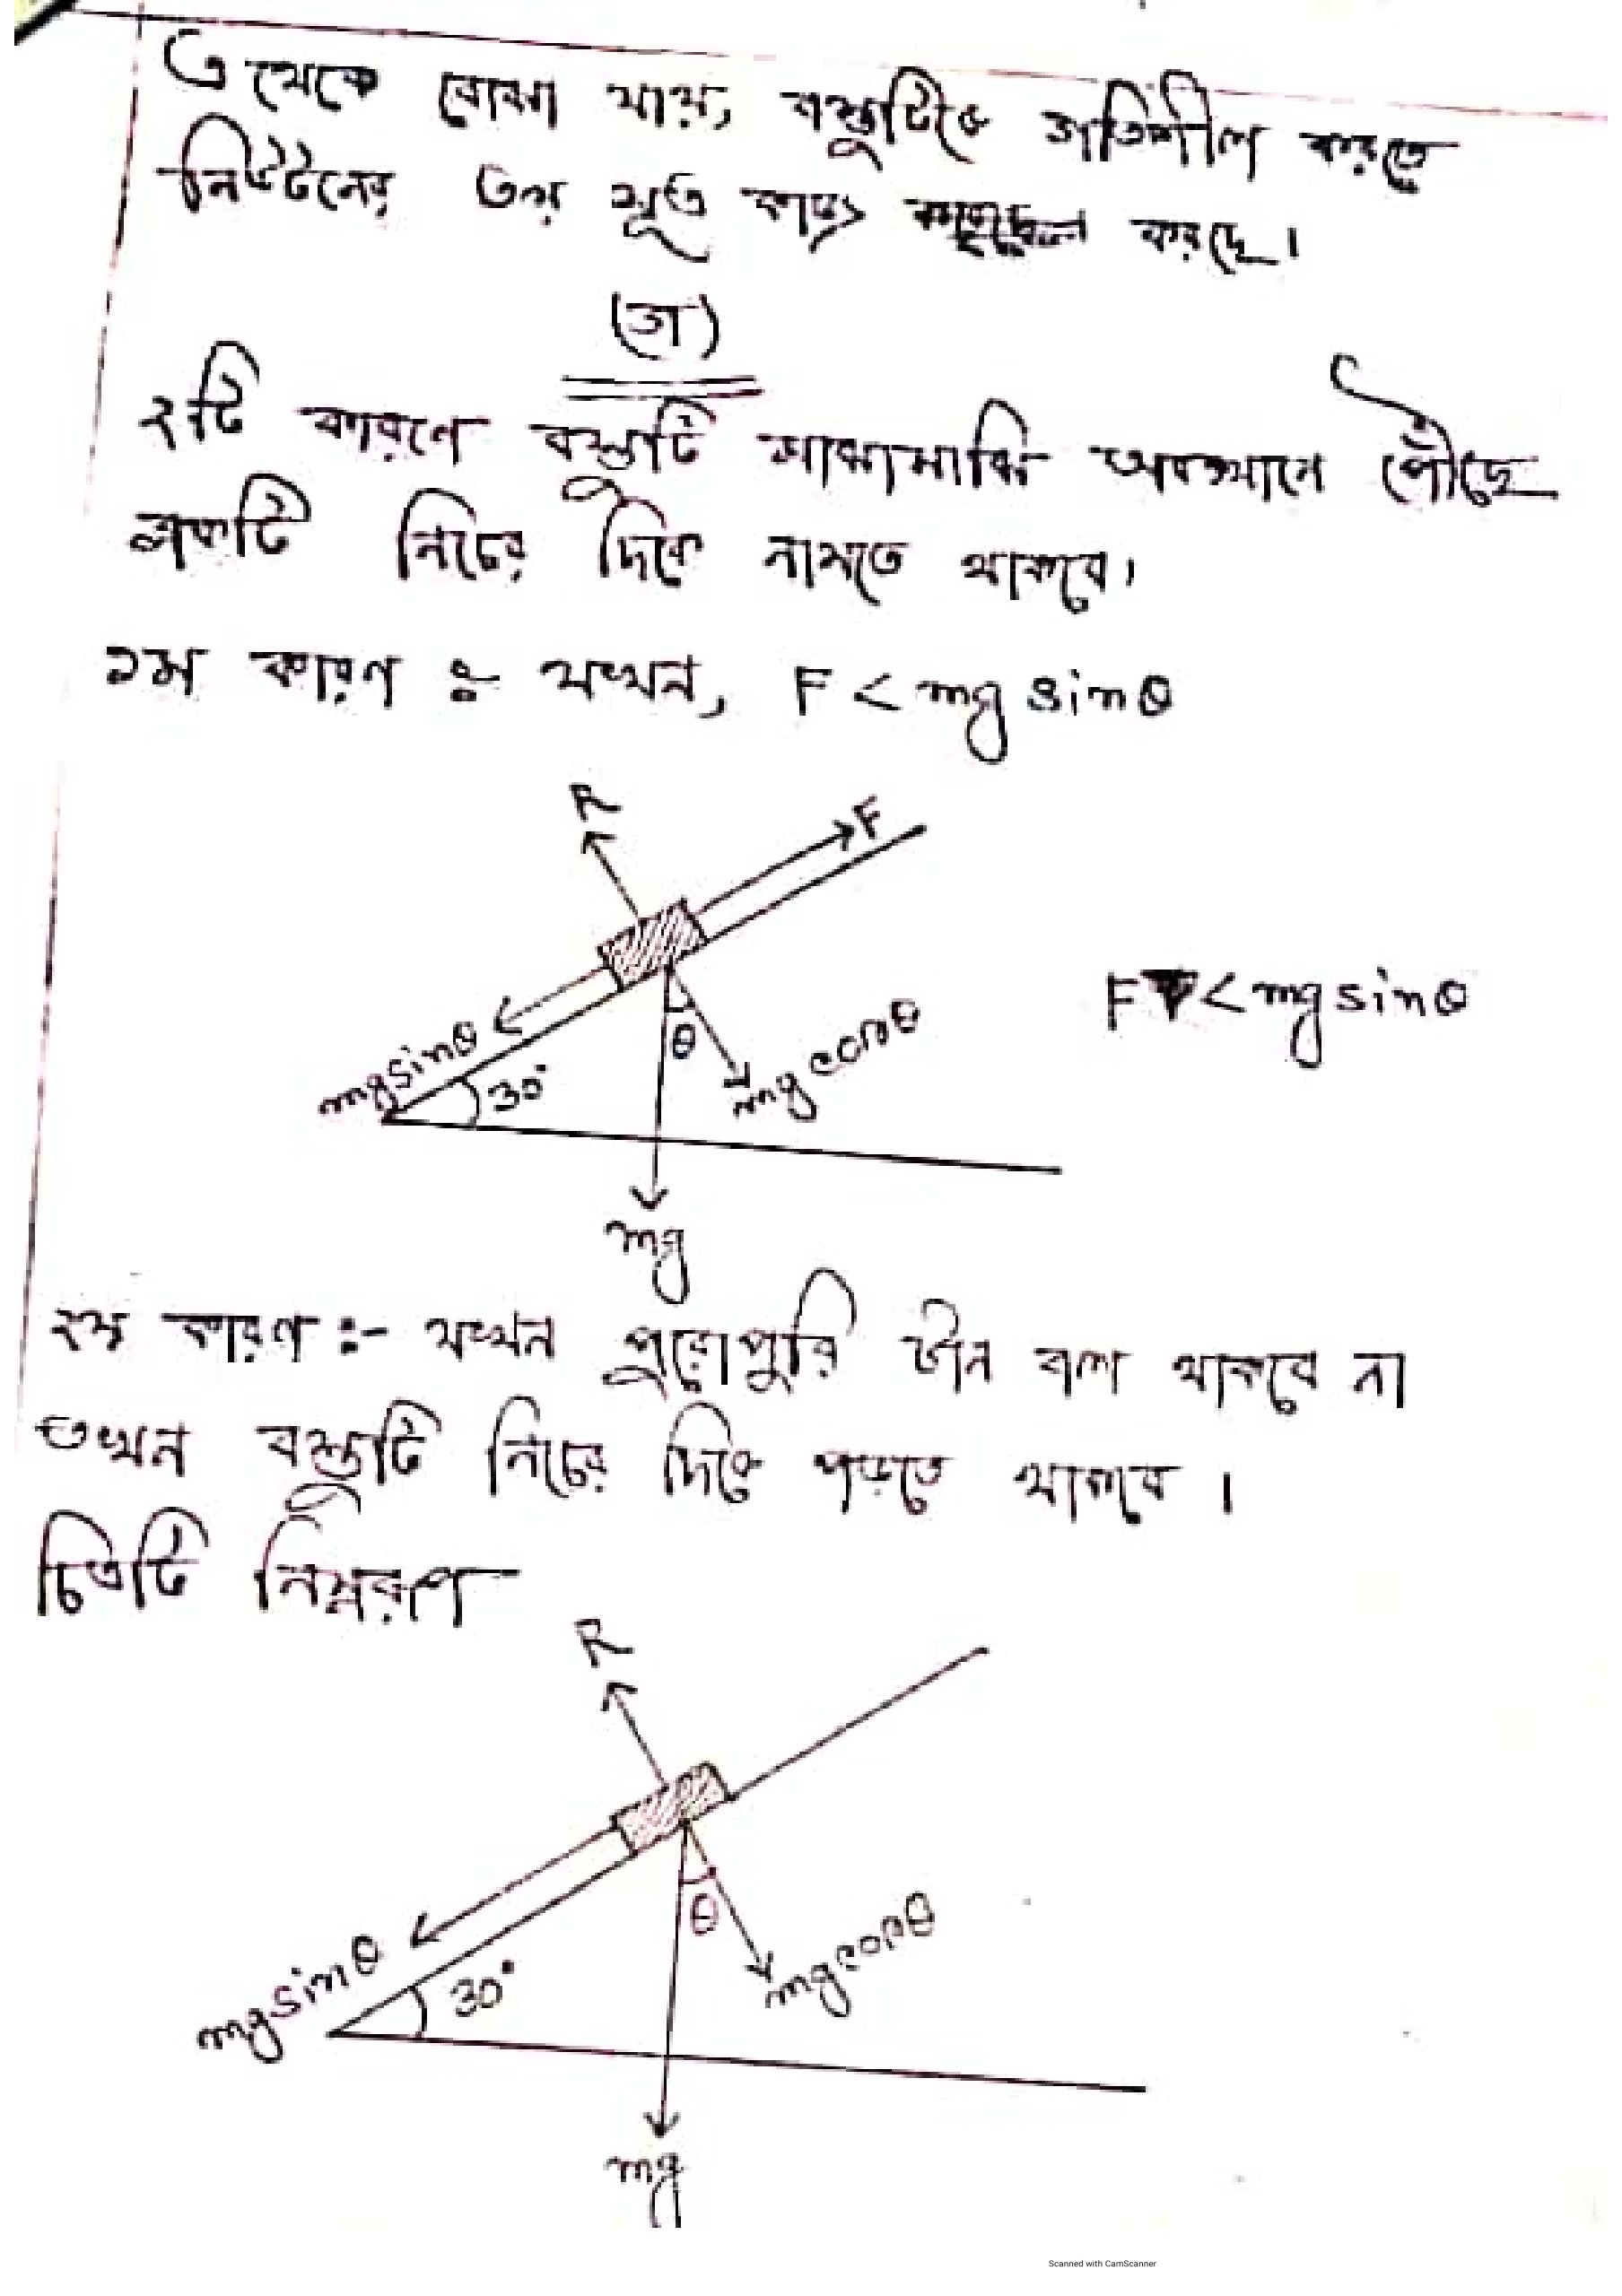 এ থেকে বোঝা যায়, বস্তুটিকে গতিশীল করতে
নিউটনের ৩য় সূত্র কাজ করছে।
(গ)
২টি কারণে বস্তুটি মাঝামাঝি অবস্থানে পৌঁছে
একটি নিচের দিকে নামতে থাকবে।
১ম কারণ ঃ- যখন, F < mg sinθ
R
F
F < mg sinθ
mg sinθ
30°
θ
mg cosθ
mg
২য় কারণ :- যখন পুরোপুরি টান বল থাকবে না
তখন বস্তুটি নিচের দিকে পড়তে থাকবে ।
চিত্রটি নিম্নরূপ
R
mg sinθ
30°
θ
mg cosθ
mg
Scanned with CamScanner